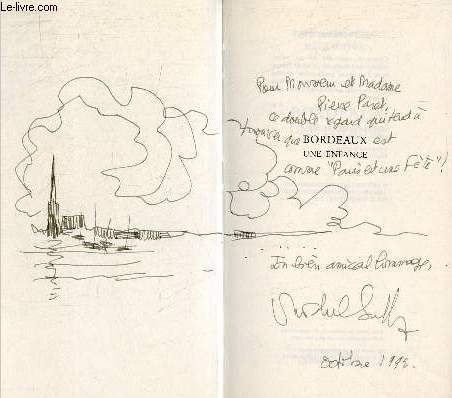 © Le-livre.com
Pour Monsieur et Madame
Pierre Paret,
ce double regard qui tend à
prouver que BORDEAUX est
UNE ENFANCE
comme "Paris est une Fête"!
En bien amical hommage,
octobre 1995.